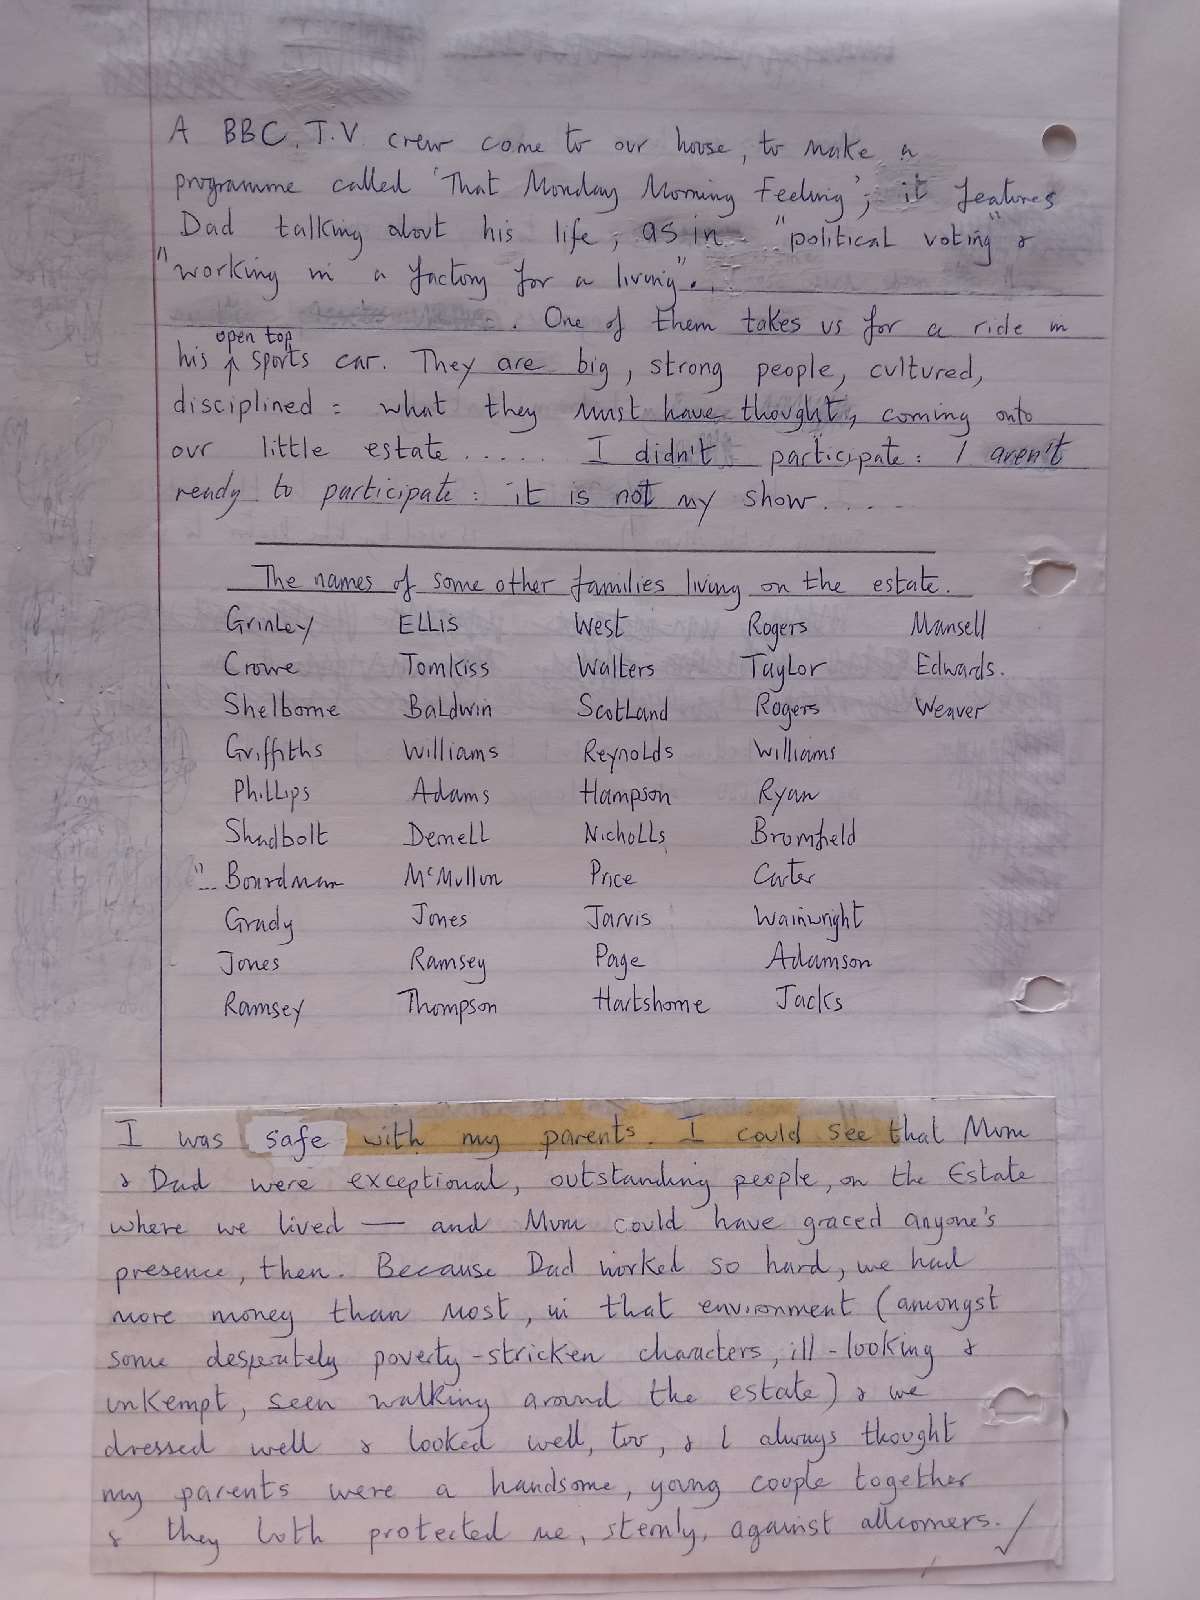 A BBC. T.V. crew come to our house, to make a
programme called 'That Monday Morning Feeling'; it features
Dad talking about his life, as in "political voting" &
"working in a factory for a living".
. One of them takes us for a ride in
open top
his ^ sports car. They are big, strong people, cultured,
disciplined: what they must have thought, coming onto
our little estate..... I didn't participate: I aren't
ready to participate: it is not my show.....
The names of some other families living on the estate.
Grinley ELLIS West Rogers Mansell
Crowe Tomkiss Walters Taylor Edwards.
Shelborne Baldwin Scotland Rogers Weaver
Griffiths Williams Reynolds Williams
Phillips Adams Hampson Ryan
Shadbolt Demell Nicholls Bromfield
Boardman McMullon Price Carter
Grady Jones Jarvis Wainwright
Jones Ramsey Page Adamson
Ramsey Thompson Hartshorne Jacks
I was safe with my parents. I could see that Mum
& Dad were exceptional, outstanding people, on the Estate
where we lived — and Mum could have graced anyone's
presence, then. Because Dad worked so hard, we had
more money than most, in that environment (amongst
some desperately poverty-stricken characters, ill-looking &
unkempt, seen walking around the estate) & we
dressed well & looked well, too, & I always thought
my parents were a handsome, young couple together
& they both protected me, sternly, against allcomers. ✓